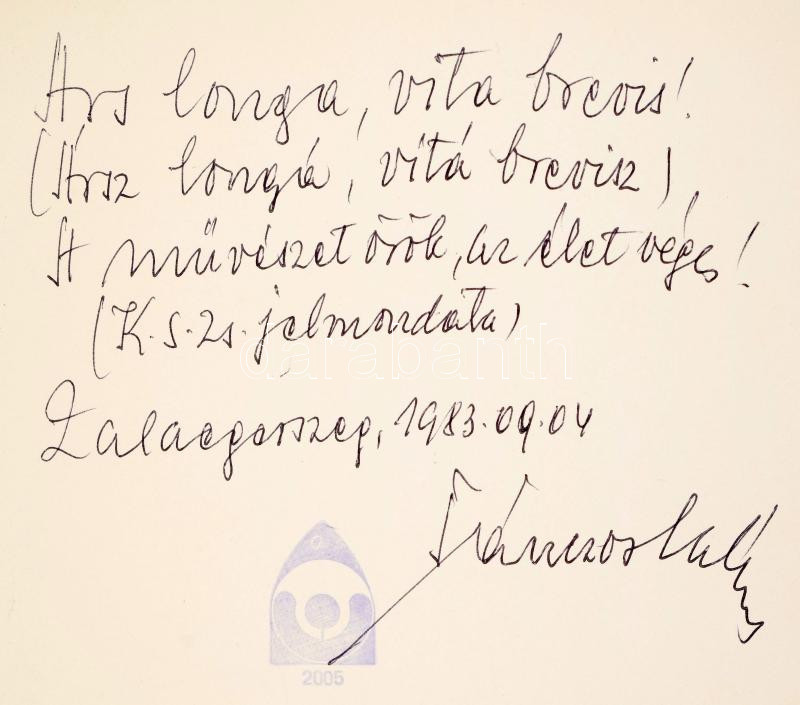 Ars longa, vita brevis!
(Ársz longá, vítá brevisz),
A művészet örök, az élet véges!
(K.S.Zs. jelmondata)
darabanth
Zalaegerszeg, 1983.09.04
2005